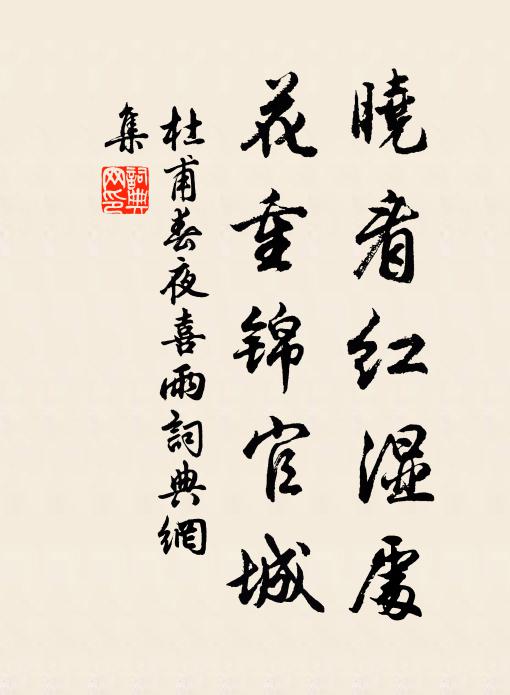 曉看紅濕處
花重錦官城
杜甫春夜喜雨詞典網
集
詞典
网印